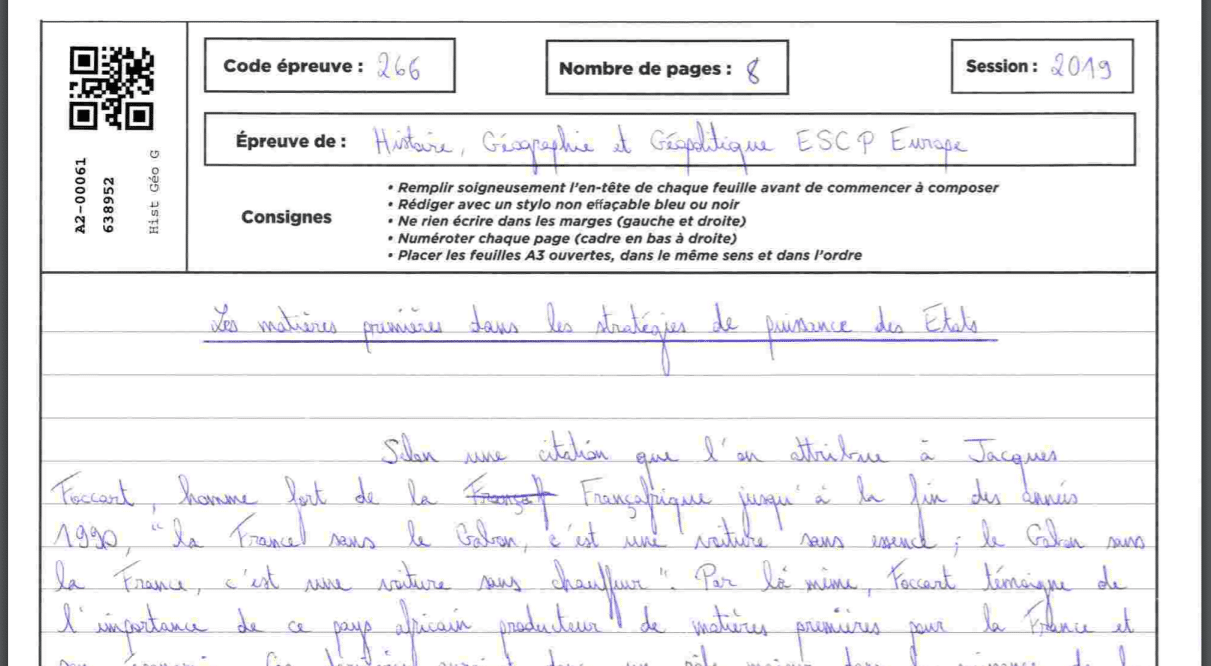 Code épreuve : 266
Nombre de pages : 8
Session : 2019
Épreuve de : Histoire, Géographie et Géopolitique ESCP Europe
A2-00061
638952
Hist Géo G
Consignes
• Remplir soigneusement l'en-tête de chaque feuille avant de commencer à composer
• Rédiger avec un stylo non effaçable bleu ou noir
• Ne rien écrire dans les marges (gauche et droite)
• Numéroter chaque page (cadre en bas à droite)
• Placer les feuilles A3 ouvertes, dans le même sens et dans l'ordre
Les matières premières dans les stratégies de puissance des Etats
Selon une citation que l'on attribue à Jacques
Foccart, homme fort de la Françafrique jusqu'à la fin des années
1990, "la France sans le Gabon, c'est une voiture sans essence ; le Gabon sans
la France, c'est une voiture sans chauffeur". Par là même, Foccart témoigne de
l'importance de ce pays africain producteur de matières premières pour la France et